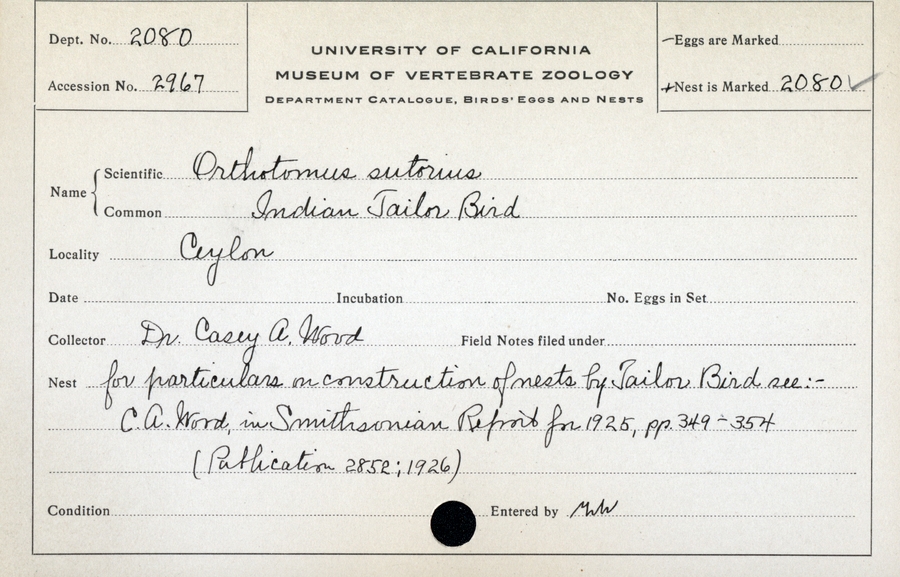 Dept. No. 2080
Accession No. 2967
UNIVERSITY OF CALIFORNIA
MUSEUM OF VERTEBRATE ZOOLOGY
DEPARTMENT CATALOGUE, BIRDS' EGGS AND NESTS
—Eggs are Marked
+Nest is Marked 2080 ✓
Name { Scientific Orthotomus sutorius
Common Indian Tailor Bird
Locality Ceylon
Date Incubation No. Eggs in Set
Collector Dr. Casey A. Wood Field Notes filed under
Nest for particulars on construction of nests by Tailor Bird see:-
C.A. Wood, in Smithsonian Report for 1925, pp. 349-354
(Publication 2852; 1926)
Condition Entered by